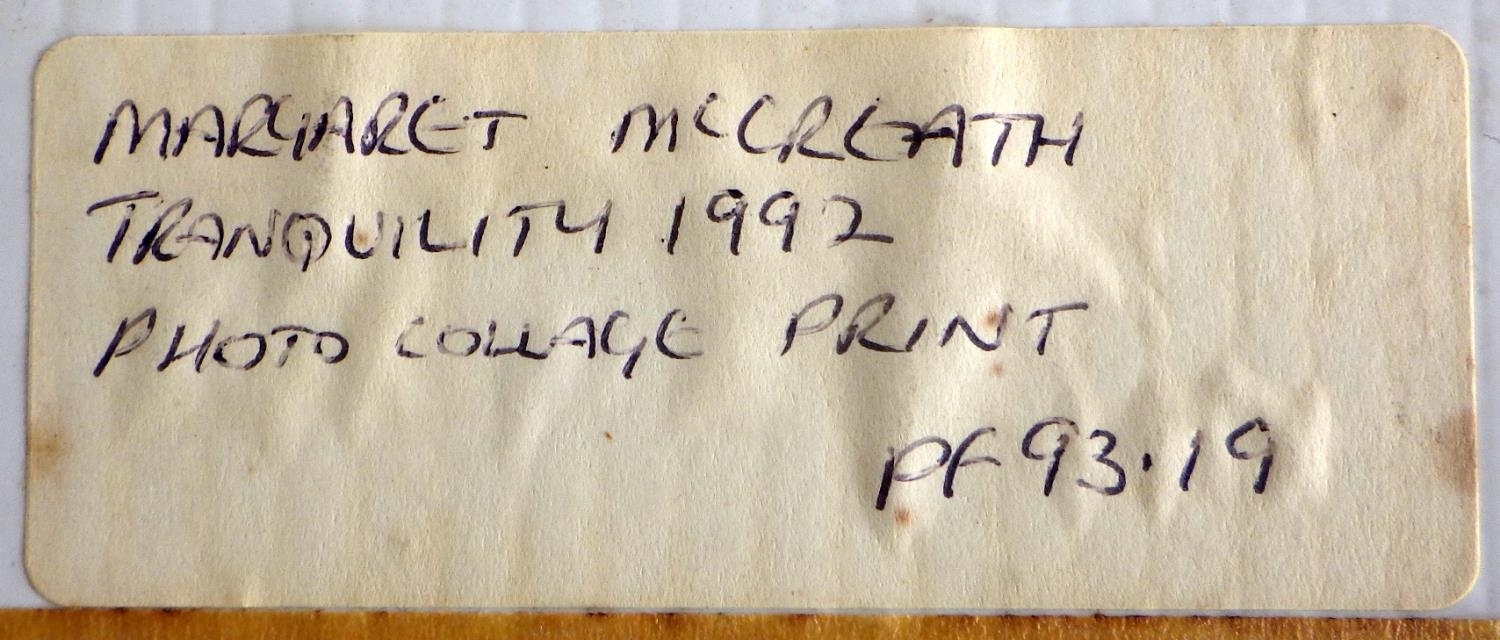 MARGARET McCREATH
TRANQUILITY 1992
PHOTO COLLAGE PRINT
PF 93.19